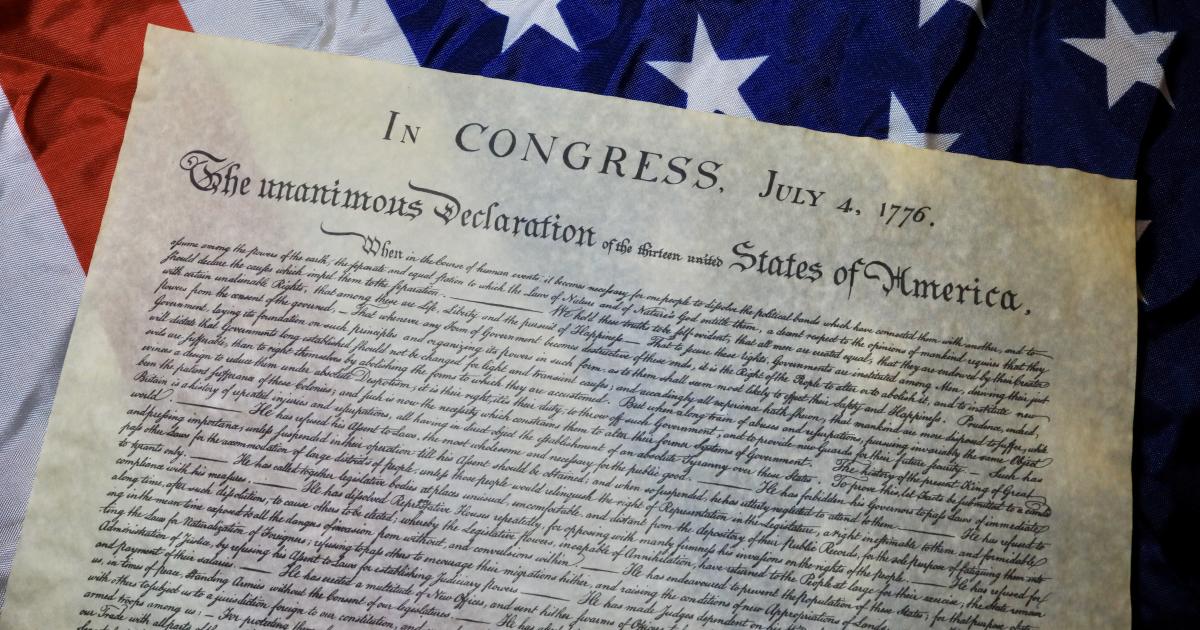 In CONGRESS, July 4, 1776.
The unanimous Declaration of the thirteen united States of America,
When in the Course of human events it becomes necessary for one people to dissolve the political bands which have connected them with another, and to
assume among the powers of the earth, the separate and equal station to which the Laws of Nature and of Nature's God entitle them, a decent respect to the opinions of mankind requires that they
should declare the causes which impel them to the separation. We hold these truths to be self-evident, that all men are created equal, that they are endowed by their Creator
with certain unalienable Rights, that among these are Life, Liberty and the pursuit of Happiness — That to secure these rights, Governments are instituted among Men, deriving their just
powers from the consent of the governed, — That whenever any Form of Government becomes destructive of these ends, it is the Right of the People to alter or to abolish it, and to institute new
Government, laying its foundation on such principles and organizing its powers in such form, as to them shall seem most likely to effect their Safety and Happiness. Prudence, indeed,
will dictate that Governments long established should not be changed for light and transient causes; and accordingly all experience hath shewn, that mankind are more disposed to suffer, while
evils are sufferable, than to right themselves by abolishing the forms to which they are accustomed. But when a long train of abuses and usurpations, pursuing invariably the same Object
evinces a design to reduce them under absolute Despotism, it is their right, it is their duty, to throw off such Government, and to provide new Guards for their future security — Such has
been the patient sufferance of these Colonies; and such is now the necessity which constrains them to alter their former Systems of Government. The history of the present King of Great
Britain is a history of repeated injuries and usurpations, all having in direct object the establishment of an absolute Tyranny over these States. To prove this, let Facts be submitted to a candid
world. He has refused his Assent to Laws, the most wholesome and necessary for the public good. He has forbidden his Governors to pass Laws of immediate
and pressing importance, unless suspended in their operation till his Assent should be obtained; and when so suspended, he has utterly neglected to attend to them. He has refused to
pass other Laws for the accommodation of large districts of people, unless those people would relinquish the right of Representation in the Legislature, a right inestimable to them and formidable
to tyrants only. He has called together legislative bodies at places unusual, uncomfortable, and distant from the depository of their Public Records, for the sole purpose of fatiguing them into
compliance with his measures. He has dissolved Representative Houses repeatedly, for opposing with manly firmness his invasions on the rights of the people. He has refused for
along time, after such dissolutions, to cause others to be elected; whereby the Legislative powers, incapable of Annihilation, have returned to the People at large for their exercise; the State remain
ing in the mean time exposed to all the dangers of invasion from without, and convulsions within. He has endeavoured to prevent the population of these States; for that purpose obstruc
ting the Laws for Naturalization of Foreigners; refusing to pass others to encourage their migrations hither, and raising the conditions of new Appropriations of Lands.
Administration of Justice, by refusing his Assent to Laws for establishing Judiciary powers. He has made Judges dependent on his
and payment of their salaries. He has erected a multitude of New Offices, and sent hither swarms of Officers to
us, in times of peace, Standing Armies without the Consent of our legislatures.
with others to subject us to a jurisdiction foreign to our constitution, and
armed troops among us: — For protecting them
our Trade with all parts of the